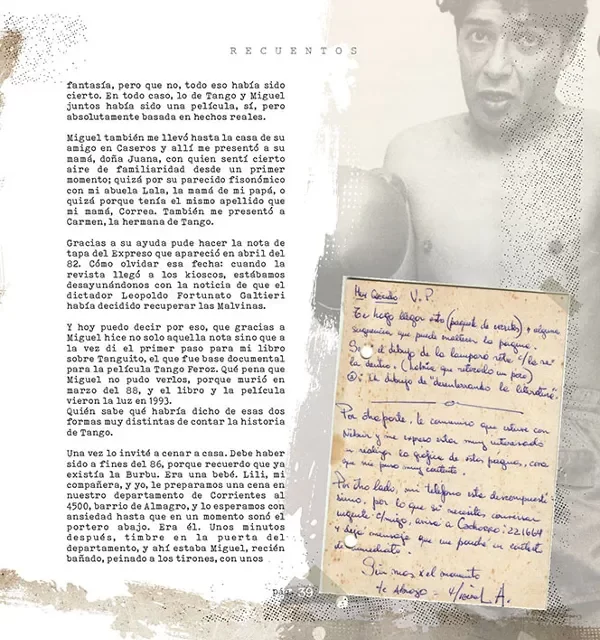 RECUENTOS
fantasía, pero que no, todo eso había sido
cierto. En todo caso, lo de Tango y Miguel
juntos había sido una película, sí, pero
absolutamente basada en hechos reales.
Miguel también me llevó hasta la casa de su
amigo en Caseros y allí me presentó a su
mamá, doña Juana, con quien sentí cierto
aire de familiaridad desde un primer
momento; quizá por su parecido fisonómico
con mi abuela Lala, la mamá de mi papá, o
quizá porque tenía el mismo apellido que
mi mamá, Correa. También me presentó a
Carmen, la hermana de Tango.
Gracias a su ayuda pude hacer la nota de
tapa del Expreso que apareció en abril del
82. Cómo olvidar esa fecha: cuando la
revista llegó a los kioscos, estábamos
desayunándonos con la noticia de que el
dictador Leopoldo Fortunato Galtieri
había decidido recuperar las Malvinas.
Y hoy puedo decir por eso, que gracias a
Miguel hice no solo aquella nota sino que a
la vez di el primer paso para mi libro
sobre Tanguito, el que fue base documental
para la película Tango Feroz. Qué pena que
Miguel no pudo verlos, porque murió en
marzo del 88, y el libro y la película
vieron la luz en 1993.
Quién sabe qué habría dicho de esas dos
formas muy distintas de contar la historia
de Tango.
Una vez lo invité a cenar a casa. Debe haber
sido a fines del 86, porque recuerdo que ya
existía la Burbu. Era una bebé. Lili, mi
compañera, y yo, le preparamos una cena en
nuestro departamento de Corrientes al
4500, barrio de Almagro, y lo esperamos con
ansiedad hasta que en un momento sonó el
portero abajo. Era él. Unos minutos
después, timbre en la puerta del
departamento, y ahí estaba Miguel, recién
bañado, peinado a los tirones, con unos
Muy Querido V.P.
Te hago llegar esto (paquete de versito) y alguna
sugerencia que puede mejorar la página.
el dibujo de la lámpara
la dentro. (habría que retocarlo un poco)
dibujo de "deslumbrando la literatura"
Por otra parte, te comunico que estuve con
Nelson y me expresó estar muy interesado
en realizar la gráfica de esta página, cosa
que me puso muy contento.
Por otro lado, mi teléfono está descompuesti-
simo, por lo que si necesitás conversar
urgente c/migo, avisá a Cachorro: 221664
y dejá mensaje que me pondré en contacto
de inmediato.
Sin más x el momento
te abrazo - L.A.
pág. 39